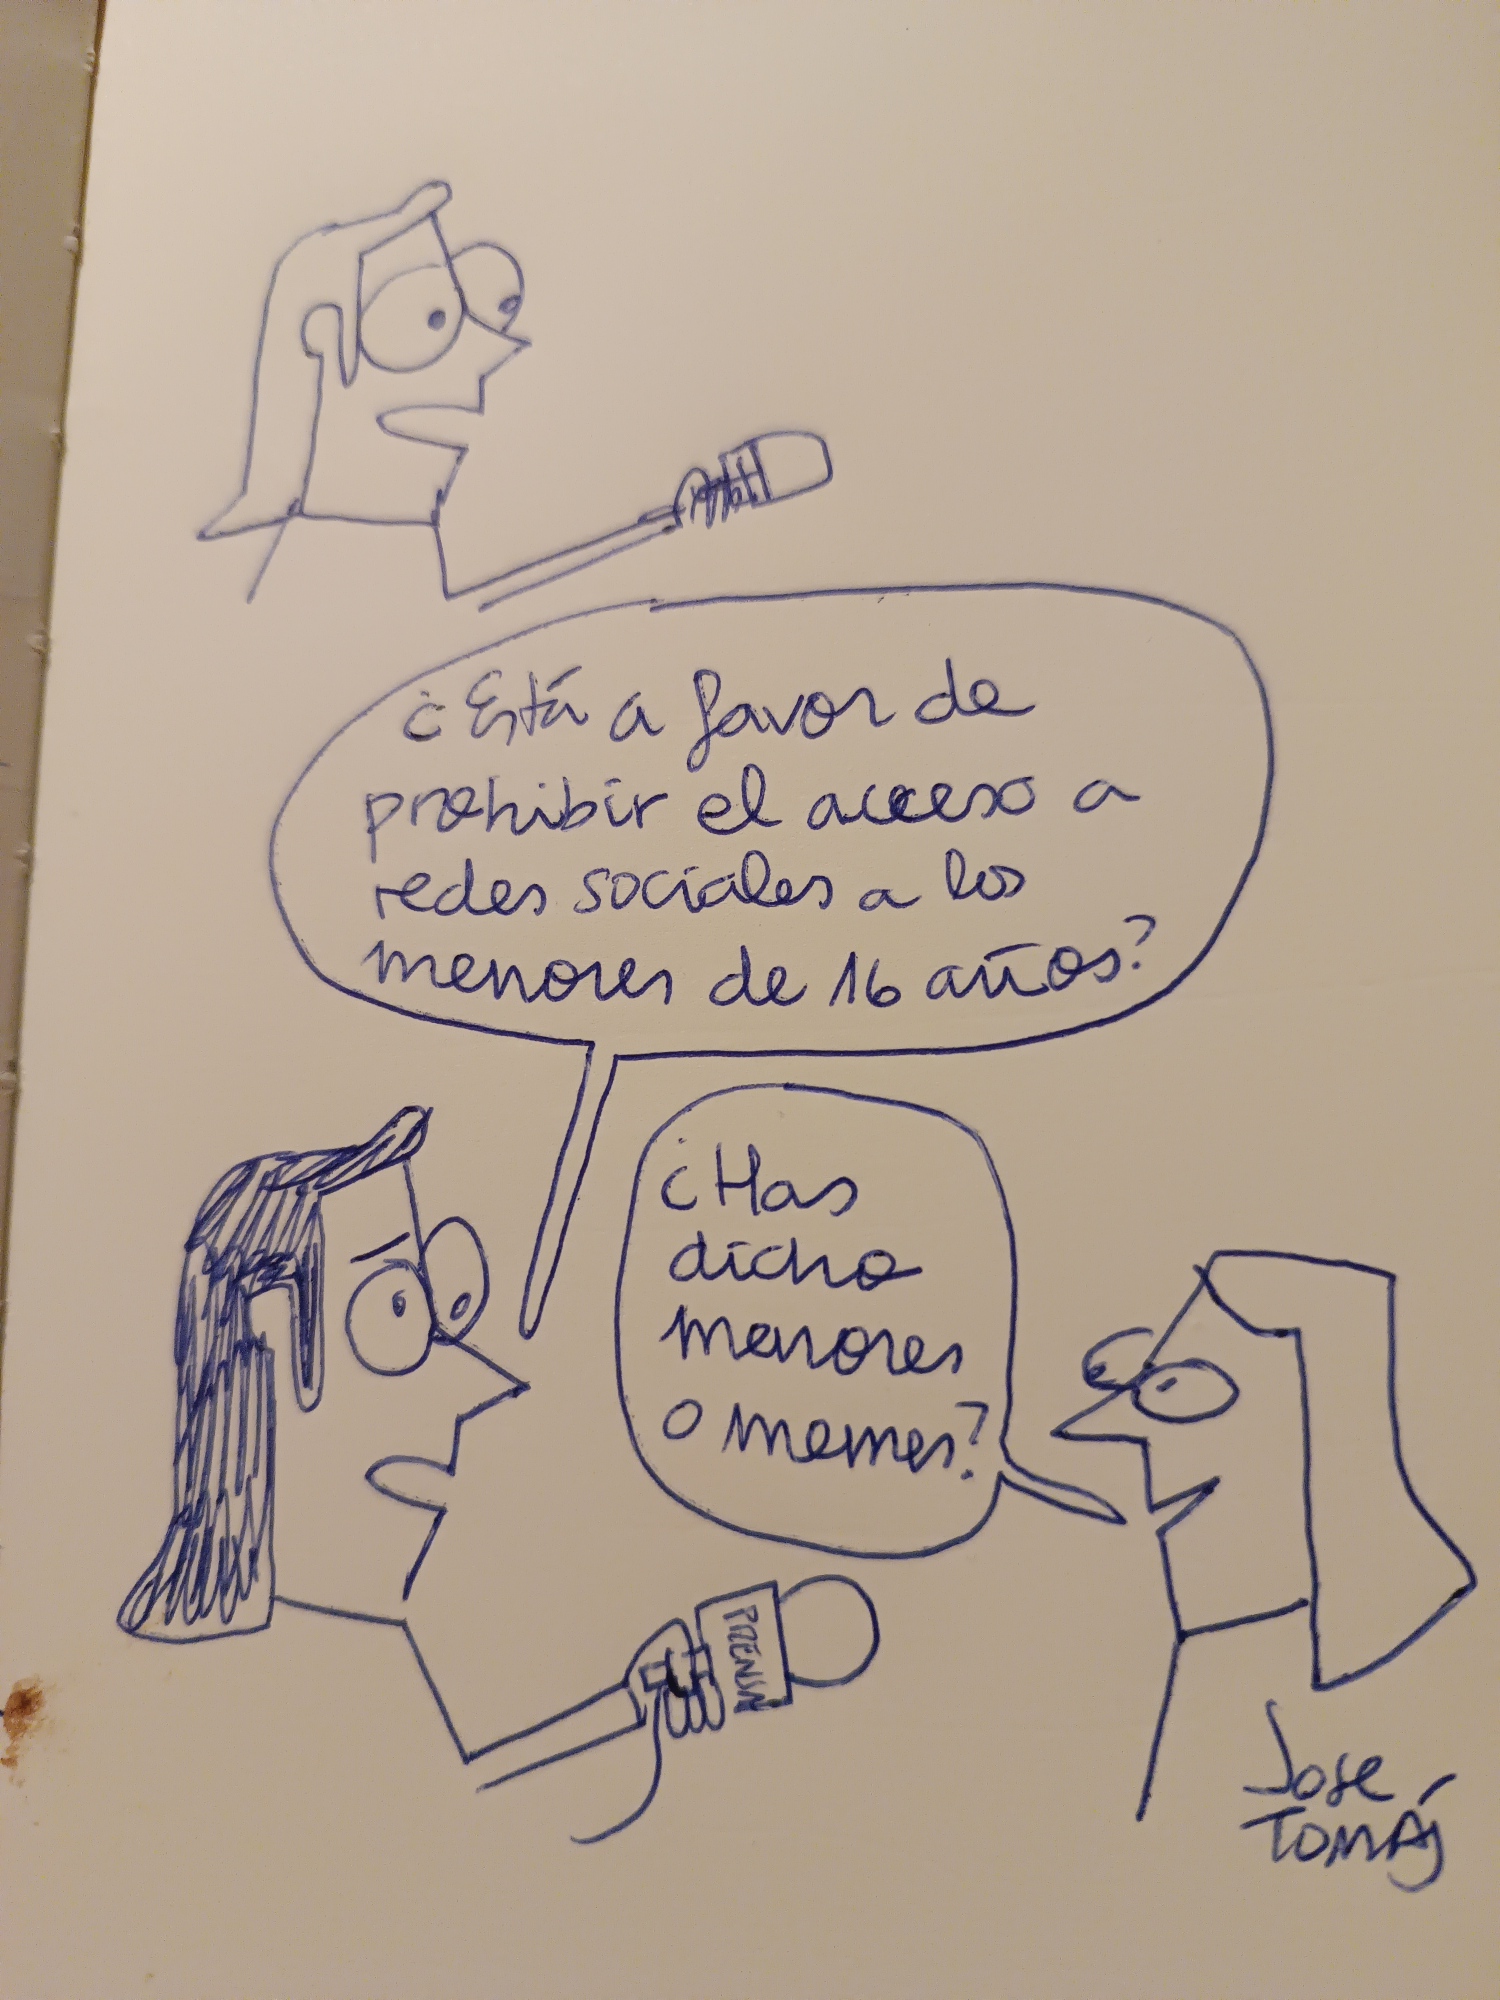 ¿Está a favor de
prohibir el acceso a
redes sociales a los
menores de 16 años?
¿Has
dicho
menores
o memes?
PRENSA
Jose
TOMÁS